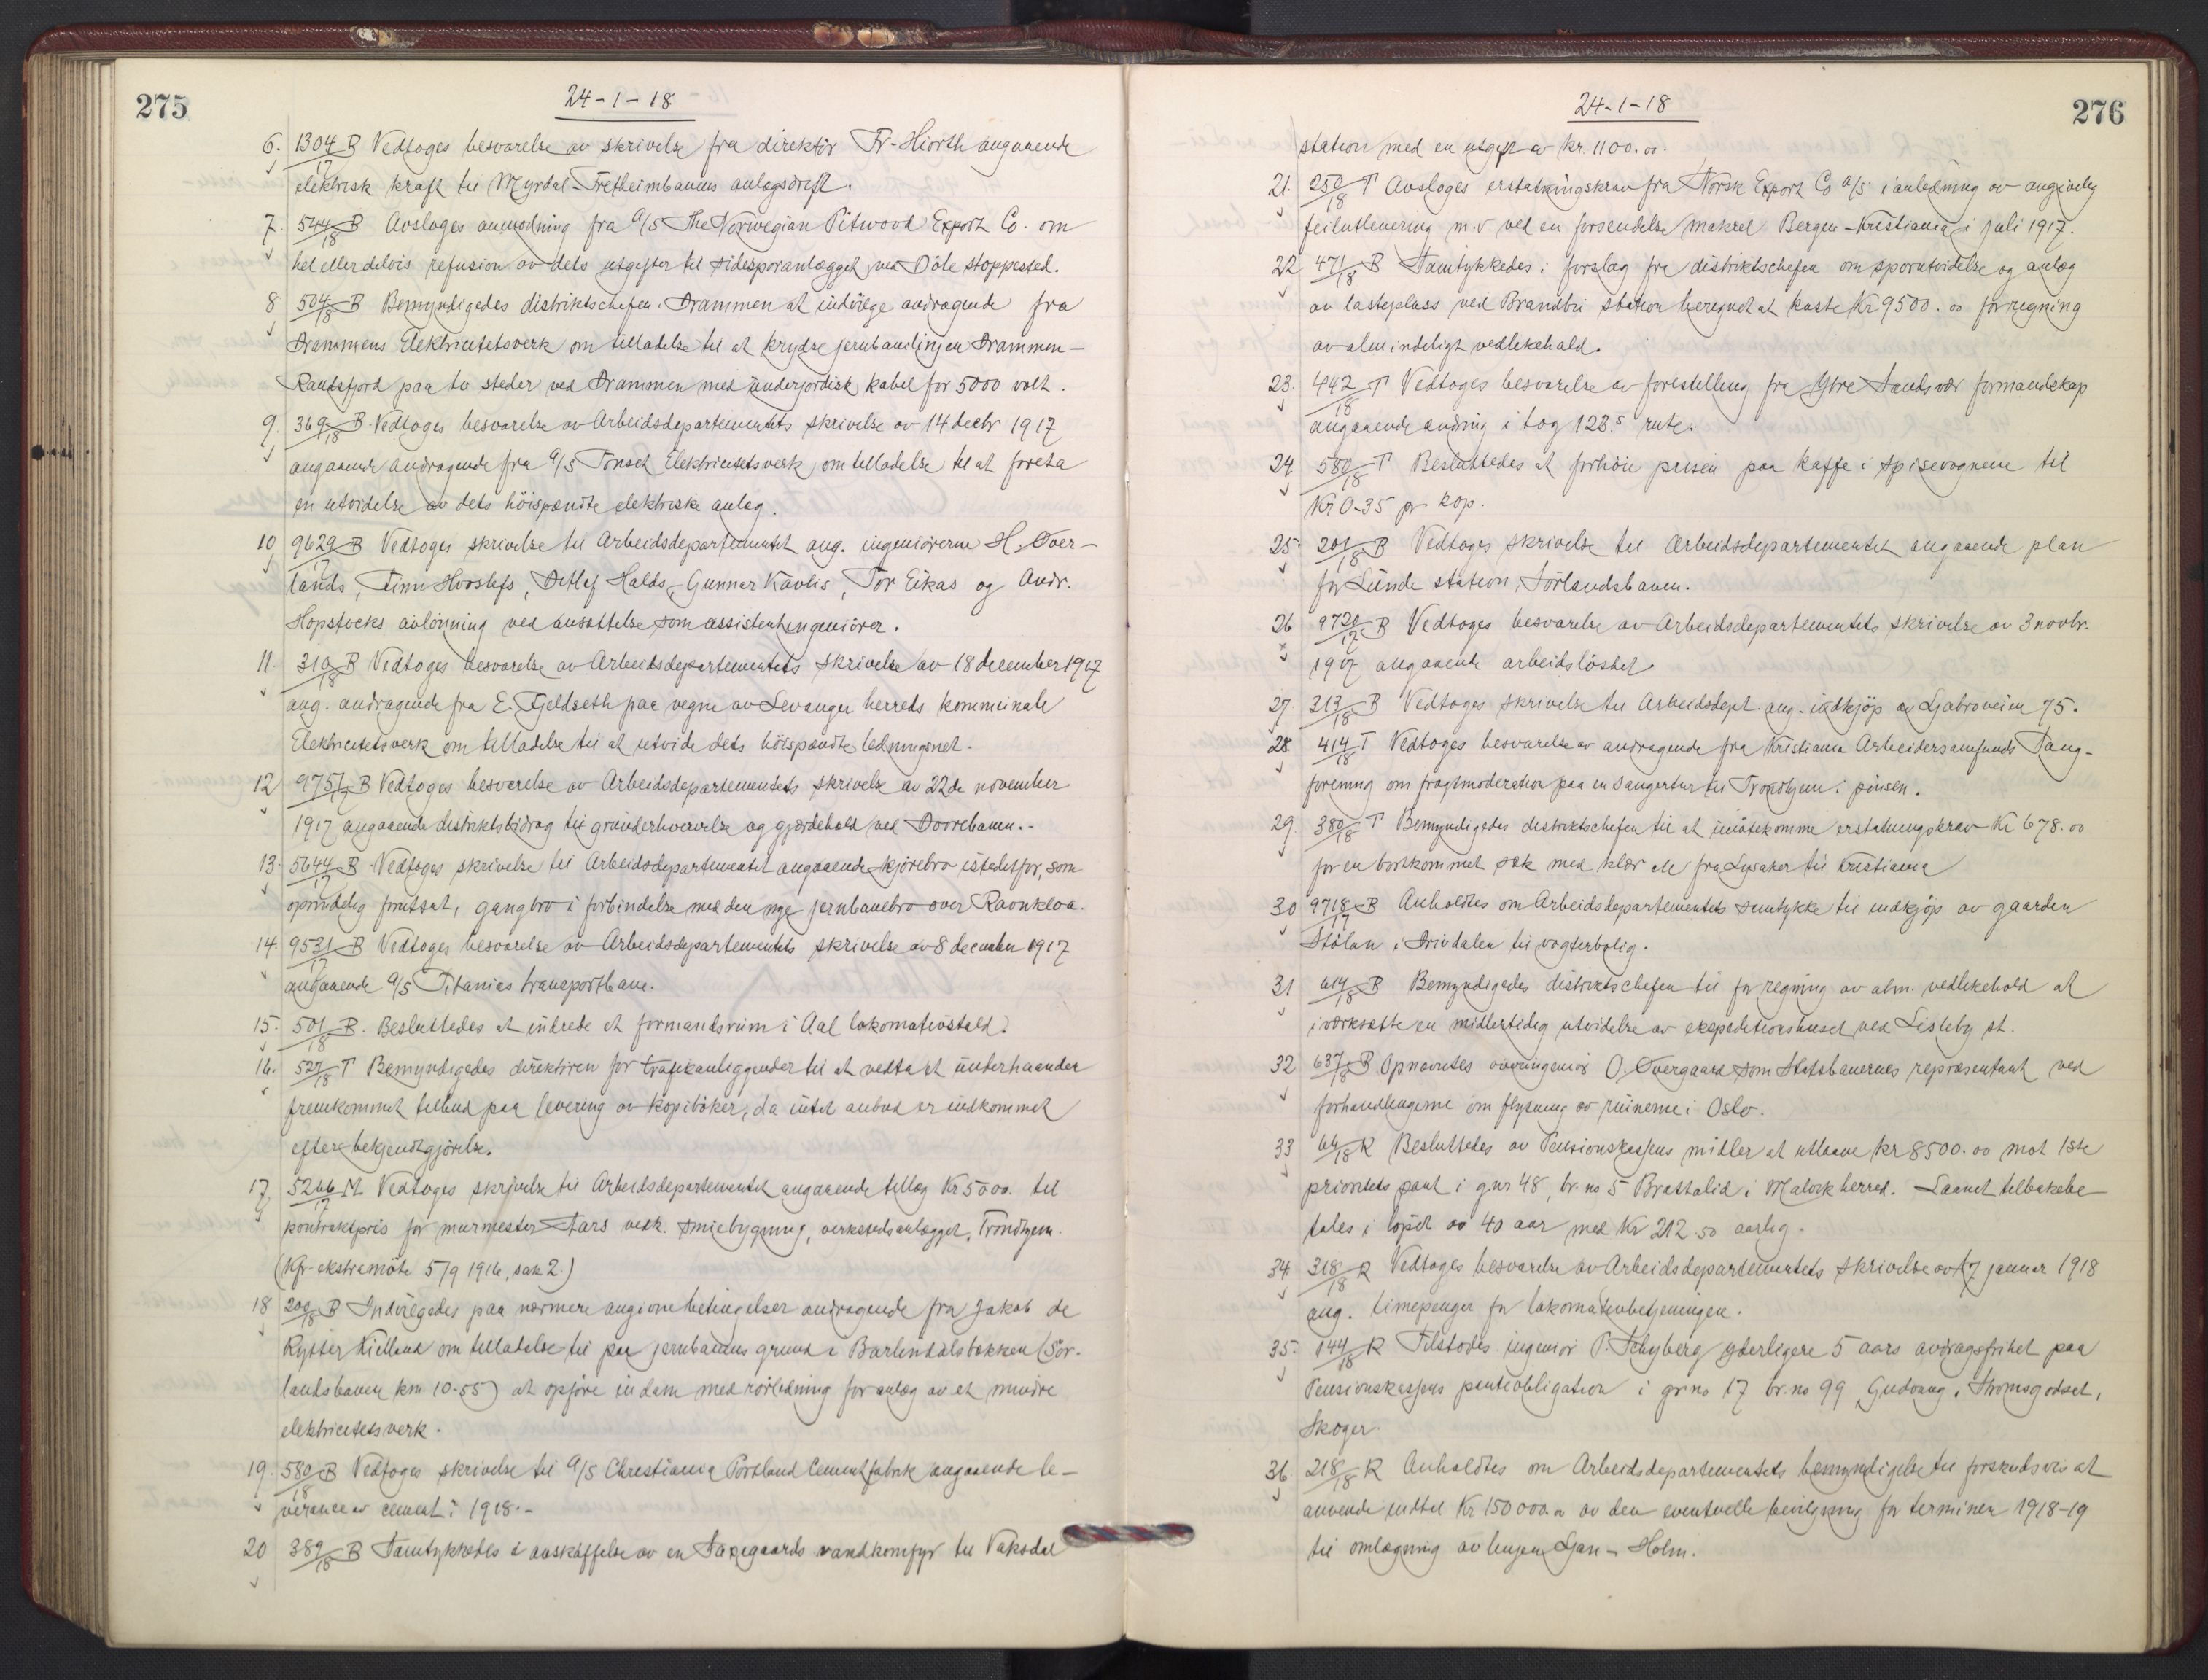 275
24-1-18
6. 1304/17 B Vedtoges besvarelse av skrivelse fra direktör Fr. Hiorth angaaende
elektrisk kraft til Myrdal-Fretheimbanens anlægsdrift.
7. 544/18 B Avsloges anmodning fra A/S The Norwegian Pitwood Export Co. om
hel eller delvis refusion av dets utgifter til sidesporanlægget ved Döle stoppested.
8 504/18 B Bemyndigedes distriktschefen Drammen at indvilge andragende fra
Drammens Elektricitetsverk om tilladelse til at krydse jernbanelinjen Drammen-
Randsfjord paa to steder ved Drammen med underjordisk kabel for 5000 volt.
9. 369/18 B. Vedtoges besvarelse av Arbeidsdepartementets skrivelse av 14 decbr 1917
angaaende andragende fra A/S Tönset Elektricitetsverk om tilladelse til at foreta
en utvidelse av dets höispændte elektriske anlæg.
10 9629/17 B Vedtoges skrivelse til Arbeidsdepartementet ang. ingeniörerne H. Över-
lands, Finn Hvoslefs, Detlef Halds, Gunnar Kavlis, Tor Eikas og Andr.
Hopstocks avlönning ved ansættelse som assistentingeniörer.
11. 310/18 B Vedtoges besvarelse av Arbeidsdepartementets skrivelse av 18 december 1917
ang. andragende fra E. Fjeldseth paa vegne av Levanger herreds kommunale
Elektricitetsverk om tilladelse til at utvide dets höispændte ledningsnet.
12 9751/17 B Vedtoges besvarelse av Arbeidsdepartementets skrivelse av 22de november
1917 angaaende distriktsbidrag til grunderhvervelse og gjerdehold ved Dovrebanen.-
13. 5644/17 B Vedtoges skrivelse til Arbeidsdepartementet angaaende kjörebro istedetfor, som
oprindelig forutsat, gangbro i forbindelse med den nye jernbanebro over Ravnkloa.
14. 9531/17 B Vedtoges besvarelse av Arbeidsdepartementets skrivelse av 8 december 1917
angaaende A/S Titanias transportbane.
15. 501/18 B. Besluttedes at indrede et formandsrum i Aal lokomotivstald.
16. 527/18 T Bemyndigedes direktören for trafikanliggender til at vedta et underhaanden
fremkommet tilbud paa levering av kopiböker, da intet anbud er indkommet
efter bekjendtgjörelse.
17, 5266/17 M Vedtoges skrivelse til Arbeidsdepartementet angaaende tillæg Kr 5000. til
kontraktpris for murmester Aars vedk. smiebygning, verkstedsanlægget, Trondhjem.
(Kfr. ekstramöte 5/9 1916, sak 2.)
18 200/18 B Indvilgedes paa nærmere angivne betingelser andragende fra Jakob de
Rytter Kielland om tilladelse til paa jernbanens grund i Barlindalsbækken (Sör-
landsbanen km 10-55) at opföre en dam med rörledning for anlæg av et mindre
elektricitetsverk.
19. 580/18 B Vedtoges skrivelse til A/S Christiania Portland Cementfabrik angaaende le-
verance av cement i 1918.-
20 389/18 B Samtykkedes i anskaffelse av en Saxegaards vandkomfyr til Vaksdal
276
24-1-18
station med en utgift av kr. 1100.00.
21. 250/18 T Avsloges erstatningskrav fra Norsk Export Co A/S i anledning av angivelig
feilutlevering m.v ved en forsendelse makrel Bergen-Kristiania i juli 1917.
22 471/18 B Samtykkedes i forslag fra distriktschefen om sporutvidelse og anlæg
av lasteplass ved Brandbu station beregnet at koste Kr 9500.00 for regning
av almindeligt vedlikehold.
23. 442/18 T Vedtoges besvarelse av forestilling fra Ytre Sandsvær formandskap
angaaende ændring i tog 123.s rute.
24. 580/18 T Besluttedes at forhöie prisen paa kaffe i spisevognene til
Kr 0-35 pr kop.
25. 201/18 B Vedtoges skrivelse til Arbeidsdepartementet angaaende plan
for Lunde station, Sörlandsbanen.
26 9720/17 B Vedtoges besvarelse av Arbeidsdepartementets skrivelse av 3 novbr.
1917 angaaende arbeidslöshet.
27. 213/18 B Vedtoges skrivelse til Arbeidsdept. ang. indkjöp av Ljabroveien 75.
28 414/18 T Vedtoges besvarelse av andragende fra Kristiania Arbeidersamfunds Sang-
forening om fragtmoderation paa en sangertur til Trondhjem i pinsen.
29. 380/18 T Bemyndigedes distriktschefen til at imötekomme erstatningskrav Kr 678.00
for en bortkommet sæk med klær etc fra Lysaker til Kristiania
30 9718/17 B Anholdtes om Arbeidsdepartementets samtykke til indkjöp av gaarden
Stölan i Drivdalen til vogterbolig.
31 614/18 B Bemyndigedes distriktschefen til for regning av alm. vedlikehold at
iverksætte en midlertidig utvidelse av ekspeditionshuset ved Lisleby st.
32 637/18 B Opnævntes overingeniör O. Övergaard som Statsbanernes repræsentant ved
forhandlingerne om flytning av ruinerne i Oslo.
33 64/18 R Besluttedes av Pensionskassens midler at utlaane kr 8500.00 mot 1ste
prioritets pant i gnr 48, br. no 5 Brattalid i Malvik herred. Laanet tilbakebe-
tales i löpet av 40 aar med Kr 212.50 aarlig.
34 318/18 R Vedtoges besvarelse av Arbeidsdepartementets skrivelse av 7 januar 1918
ang. timepenger for lokomotivbetjeningen.
35. 144/18 R Tilstodes ingeniör P. Schyberg yderligere 5 aars avdragsfrihet paa
Pensionskassens panteobligation i gr.no 17 br.no 99 Gudvang, Strömsgodset,
Skoger.
36 218/18 R Anholdtes om Arbeidsdepartementets bemyndigelse til forskudsvis at
anvende indtil Kr 150000.00 av den eventuelle bevilgning for terminen 1918-19
til omlægning av linjen Ljan - Holm.